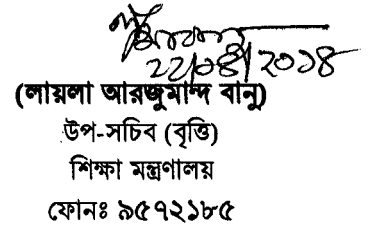 ২২/০৪/২০১৪
(লায়লা আরজুমান্দ বানু)
উপ-সচিব (বৃত্তি)
শিক্ষা মন্ত্রণালয়
ফোনঃ ৯৫৭২১৮৫